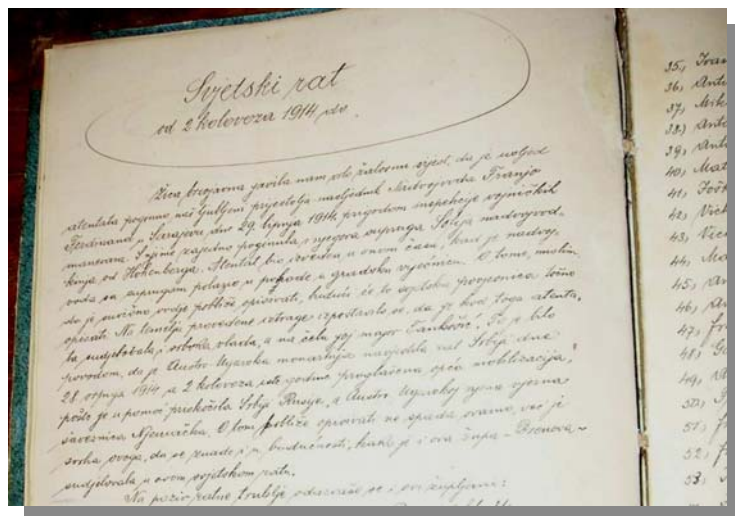 Svjetski rat
od 2 kolovoza 1914 do
Žica brzojavna javila nam je žalosnu vijest, da je uslijed
atentata poginuo naš ljubljeni prijestolja nasljednik Nadvojvoda Franjo
Ferdinand u Sarajevu dne 29 lipnja 1914 prigodom inspekcije vojničkih
manevara. S njime zajedno poginula i njegova supruga Sofija nadvojvod-
kinja od Hohenberga. Atentat bio izveden u onom času, kad je nadvoj-
voda sa suprugom polazio u pohode u gradsku vijećnicu. O tome, mislim
da je suvišno ovdje pobliže opisivati, budući će to svjetska povjesnica točno
opisati. Na temelju provedene istrage ispostavilo se, da je kod toga atenta-
ta sudjelovala i srbska vlada, a na čelu joj major Tankosić. To je bilo
povodom, da je Austro-Ugarska monarhija navjestila rat Srbiji dne
28 srpnja 1914 a 2 kolovoza iste godine proglašena opća mobilizacija,
pošto je u pomoć priskočila Srbiji Rusija, a Austro-Ugarskoj njena vjerna
saveznica Njemačka. O tom pobliže opisivati ne spada ovamo, već je
svrha ovoga, da se znade i u budućnosti, kako je i ova župa - Drenova -
sudjelovala u ovom svjetskom ratu.
Na poziv ratne trublje odazvaše se i ovi župljani:
35, Ivan
36, Ante
37, Mik
38, Ante
39, Ant
40, Mat
41, Još
42, Vick
43, Vice
44, Ma
45, An
46, An
47, Fr
48, Ga
49,
50,
51,
52,
53,